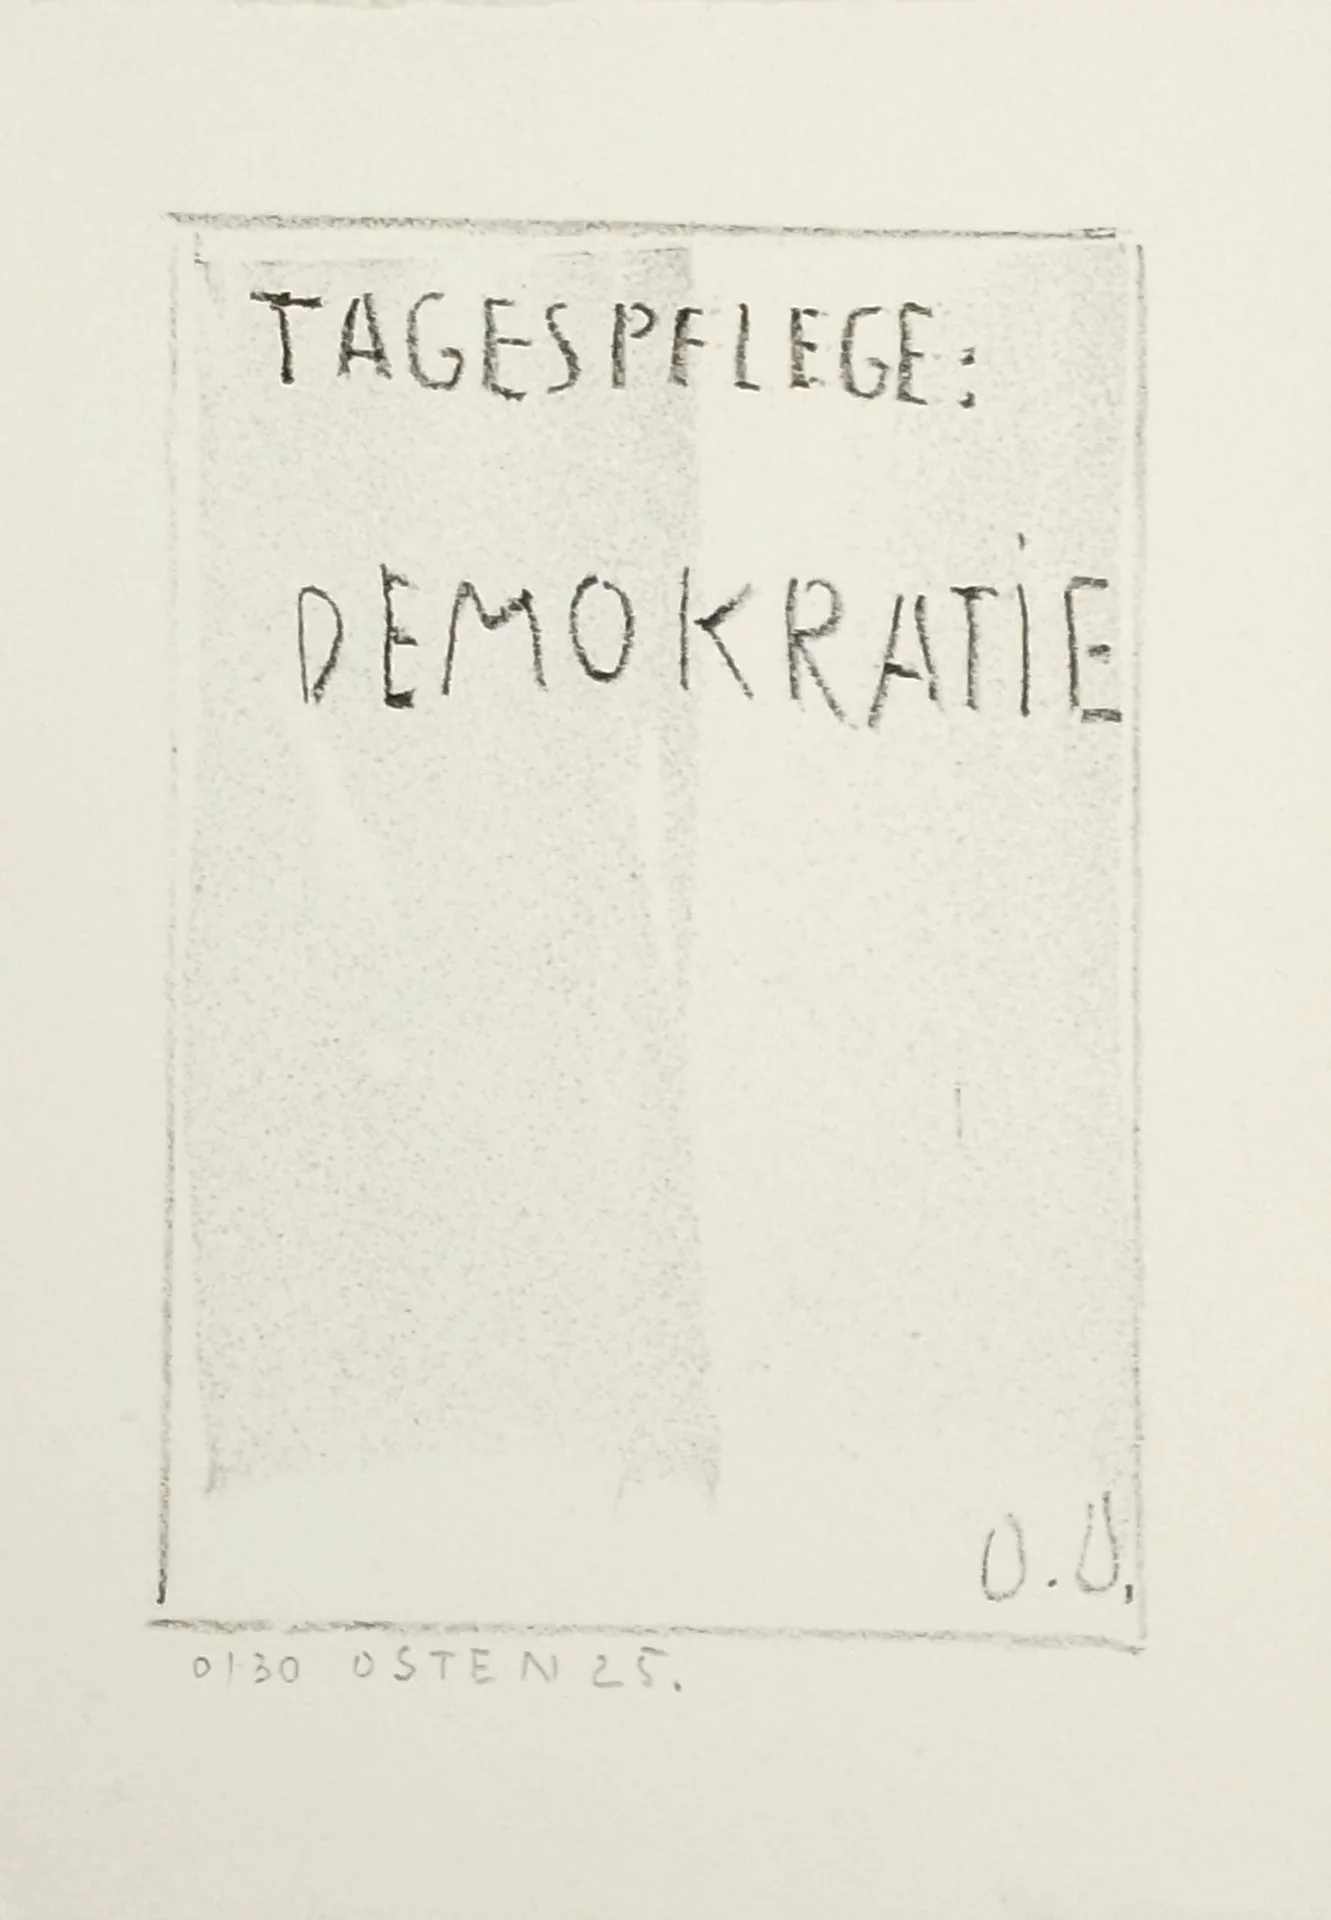 TAGESPFLEGE:
DEMOKRATiE
U.U.
0130 OSTEN 25.